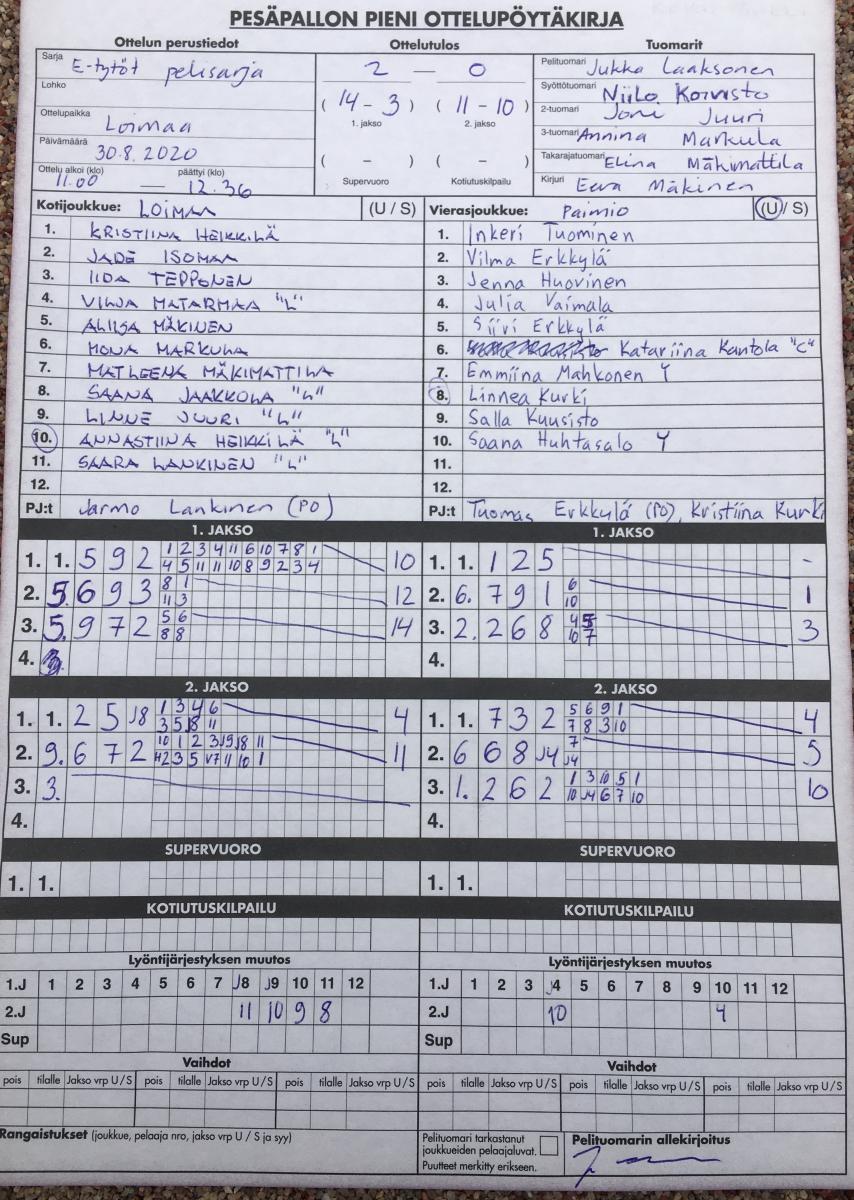 PESÄPALLON PIENI OTTELUPÖYTÄKIRJA
Ottelun perustiedot Ottelutulos Tuomarit
Sarja E-tytöt pelisarja
Lohko
Ottelupaikka Loimaa
Päivämäärä 30.8.2020
Ottelu alkoi (klo) päättyi (klo)
11.00 — 12.36
2 — 0
(14 - 3) (11 - 10)
1. jakso 2. jakso
( - ) ( - )
Supervuoro Kotiutuskilpailu
Pelituomari Jukka Laaksonen
Syöttötuomari Niilo Koivisto
2-tuomari Joni Juuri
3-tuomari Annina Markula
Takarajatuomari Elina Mäkimattila
Kirjuri Eeva Mäkinen
Kotijoukkue: LOIMAA (U / S)
1. KRISTIINA HEIKKILÄ
2. JADE ISOMAA
3. IIDA TEPPONEN
4. VILJA MATARMAA "L"
5. ALIISA MÄKINEN
6. MONA MARKULA
7. MATLEENA MÄKIMATTILA
8. SAANA JAAKKOLA "L"
9. LINNE JUURI "L"
10. ANNASTIINA HEIKKILÄ "L"
11. SAARA LANKINEN "L"
12.
PJ:t Jarmo Lankinen (PO)
Vierasjoukkue: Paimio (U / S)
1. Inkeri Tuominen
2. Vilma Erkkylä
3. Jenna Huovinen
4. Julia Vaimala
5. Siiri Erkkylä
6. Katariina Kantola "C"
7. Emmiina Mahkonen Y
8. Linnea Kurki
9. Salla Kuusisto
10. Saana Huhtasalo Y
11.
12.
PJ:t Tuomas Erkkylä (PO), Kristiina Kurki
1. JAKSO
1. 1. 5 9 2 1 2 3 4 11 6 10 7 8 1 10
4 5 11 11 10 8 9 2 3 4
2. 5. 6 9 3 8 1 12
11 3
3. 5. 9 7 2 5 6 14
8 8
4.
1. JAKSO
1. 1. 1 2 5 -
2. 6. 7 9 1 6 1
10
3. 2. 2 6 8 4 5 3
10 7
4.
2. JAKSO
1. 1. 2 5 J8 1 3 4 6 4
3 5 J8 11
2. 9. 6 7 2 10 1 2 3 J9 J8 11 11
2 3 5 11 10 1
3. 3.
4.
2. JAKSO
1. 1. 7 3 2 5 6 9 1 4
7 8 3 10
2. 6 6 8 J4 7 5
J4
3. 1. 2 6 2 1 3 10 5 1 10
10 J4 6 7 10
4.
SUPERVUORO SUPERVUORO
1. 1. 1. 1.
KOTIUTUSKILPAILU KOTIUTUSKILPAILU
Lyöntijärjestyksen muutos Lyöntijärjestyksen muutos
1.J 1 2 3 4 5 6 7 J8 J9 10 11 12 1.J 1 2 3 J4 5 6 7 8 9 10 11 12
2.J 11 10 9 8 2.J 10 4
Sup Sup
Vaihdot Vaihdot
pois tilalle Jakso vrp U / S pois tilalle Jakso vrp U / S pois tilalle Jakso vrp U / S pois tilalle Jakso vrp U / S pois tilalle Jakso vrp U / S pois tilalle Jakso vrp U / S
Rangaistukset (joukkue, pelaaja nro, jakso vrp U / S ja syy)
Pelituomari tarkastanut
joukkueiden pelaajaluvat.
Puutteet merkitty erikseen.
Pelituomarin allekirjoitus